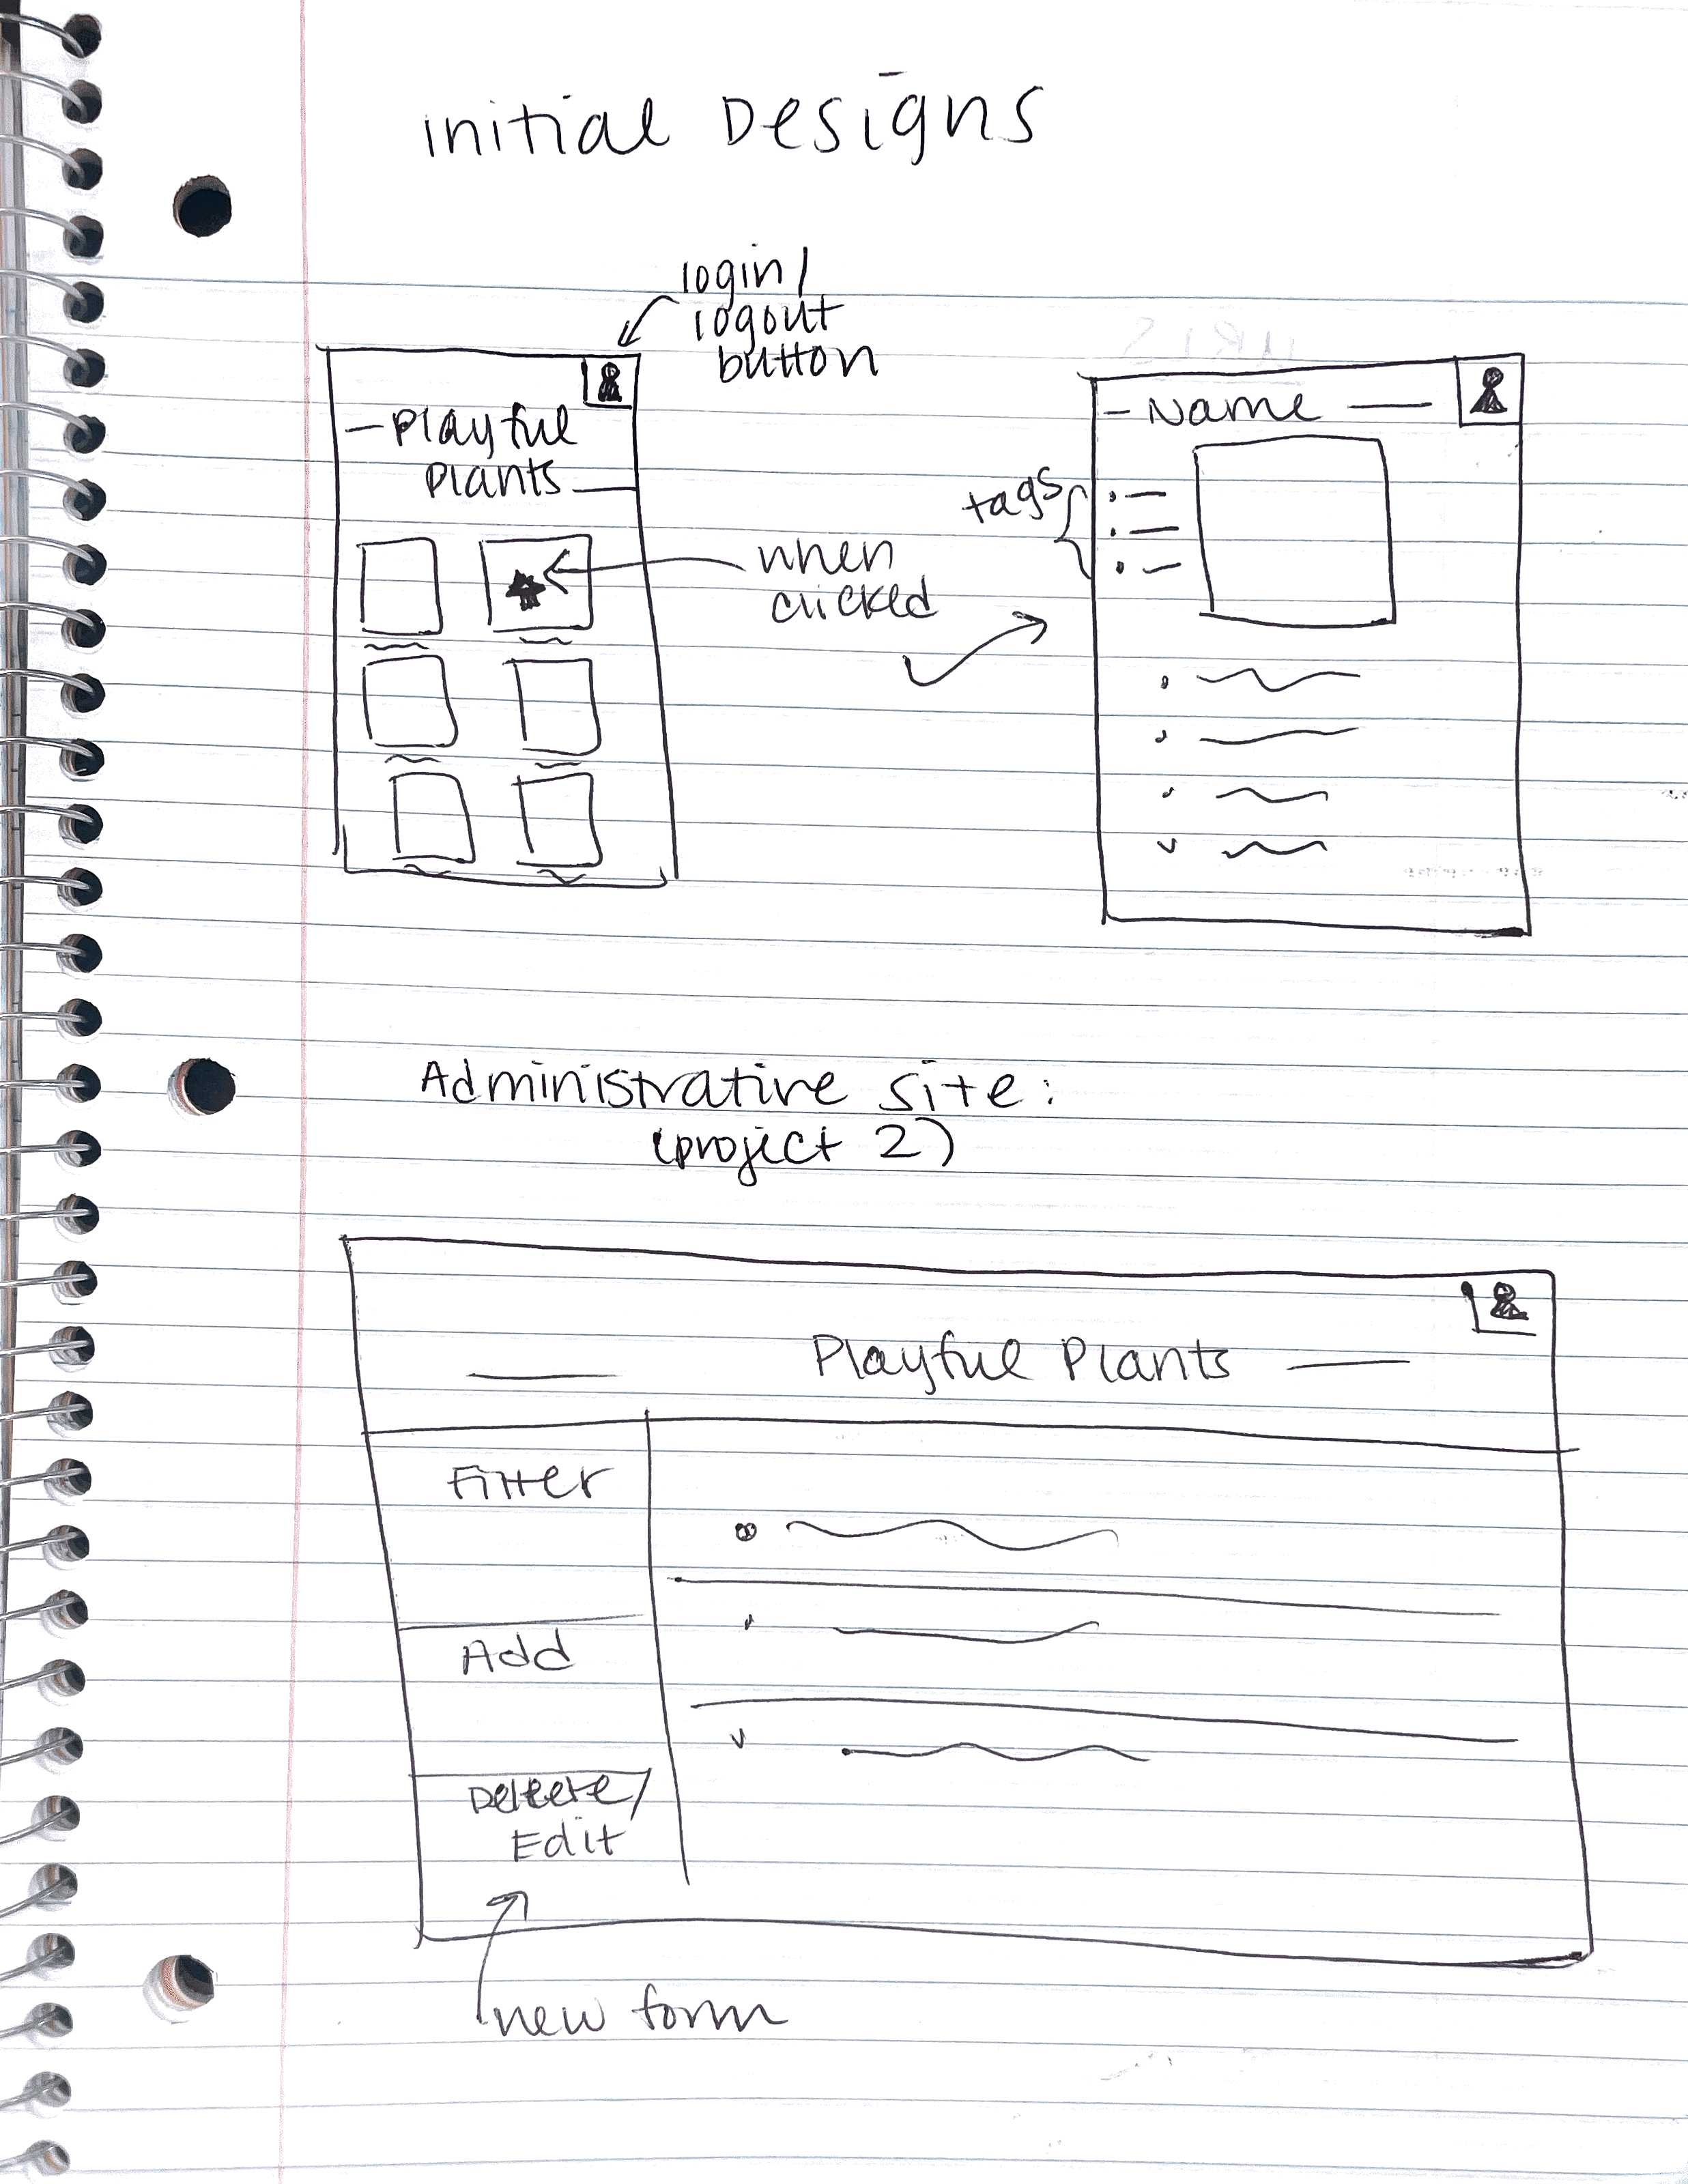 Initial Designs
login/
logout
button
Playful
Plants
when
clicked
Name
tags
Administrative site:
(project 2)
Playful Plants
Filter
Add
Delete/
Edit
new form